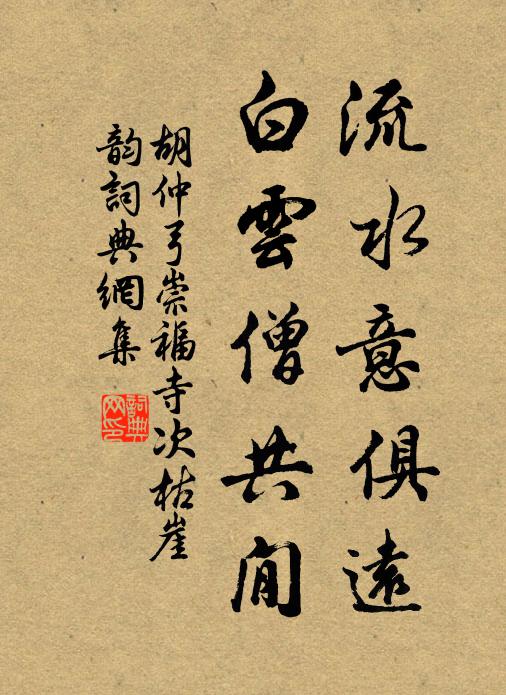 流水意俱遠
白雲僧共閒
胡仲弓崇福寺次枯崖
韵詞典網集
詞典網印